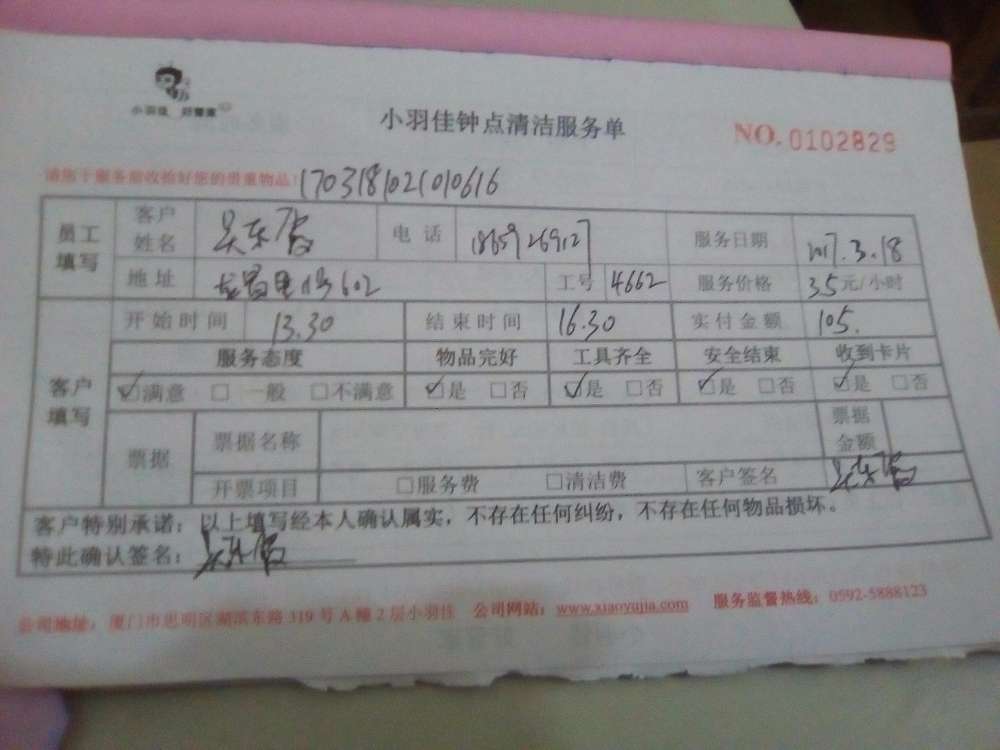 小羽佳 好管家
小羽佳钟点清洁服务单
NO. 0102829
请您于服务前收拾好您的贵重物品! 1703181021010616
员工填写 客户姓名 吴东 电话 18659269127 服务日期 2017.3.18
地址 602 工号 4662 服务价格 35元/小时
客户填写 开始时间 13.30 结束时间 16.30 实付金额 105.
服务态度 物品完好 工具齐全 安全结束 收到卡片
☑满意 □一般 □不满意 ☑是 □否 ☑是 □否 ☑是 □否 ☑是 □否
票据 票据名称 票据金额
开票项目 □服务费 □清洁费 客户签名 吴东
客户特别承诺：以上填写经本人确认属实，不存在任何纠纷，不存在任何物品损坏。
特此确认签名：吴东
公司地址：厦门市思明区湖滨东路 319 号 A 幢 2 层小羽佳 公司网站：www.xiaoyujia.com 服务监督热线：0592-5888123